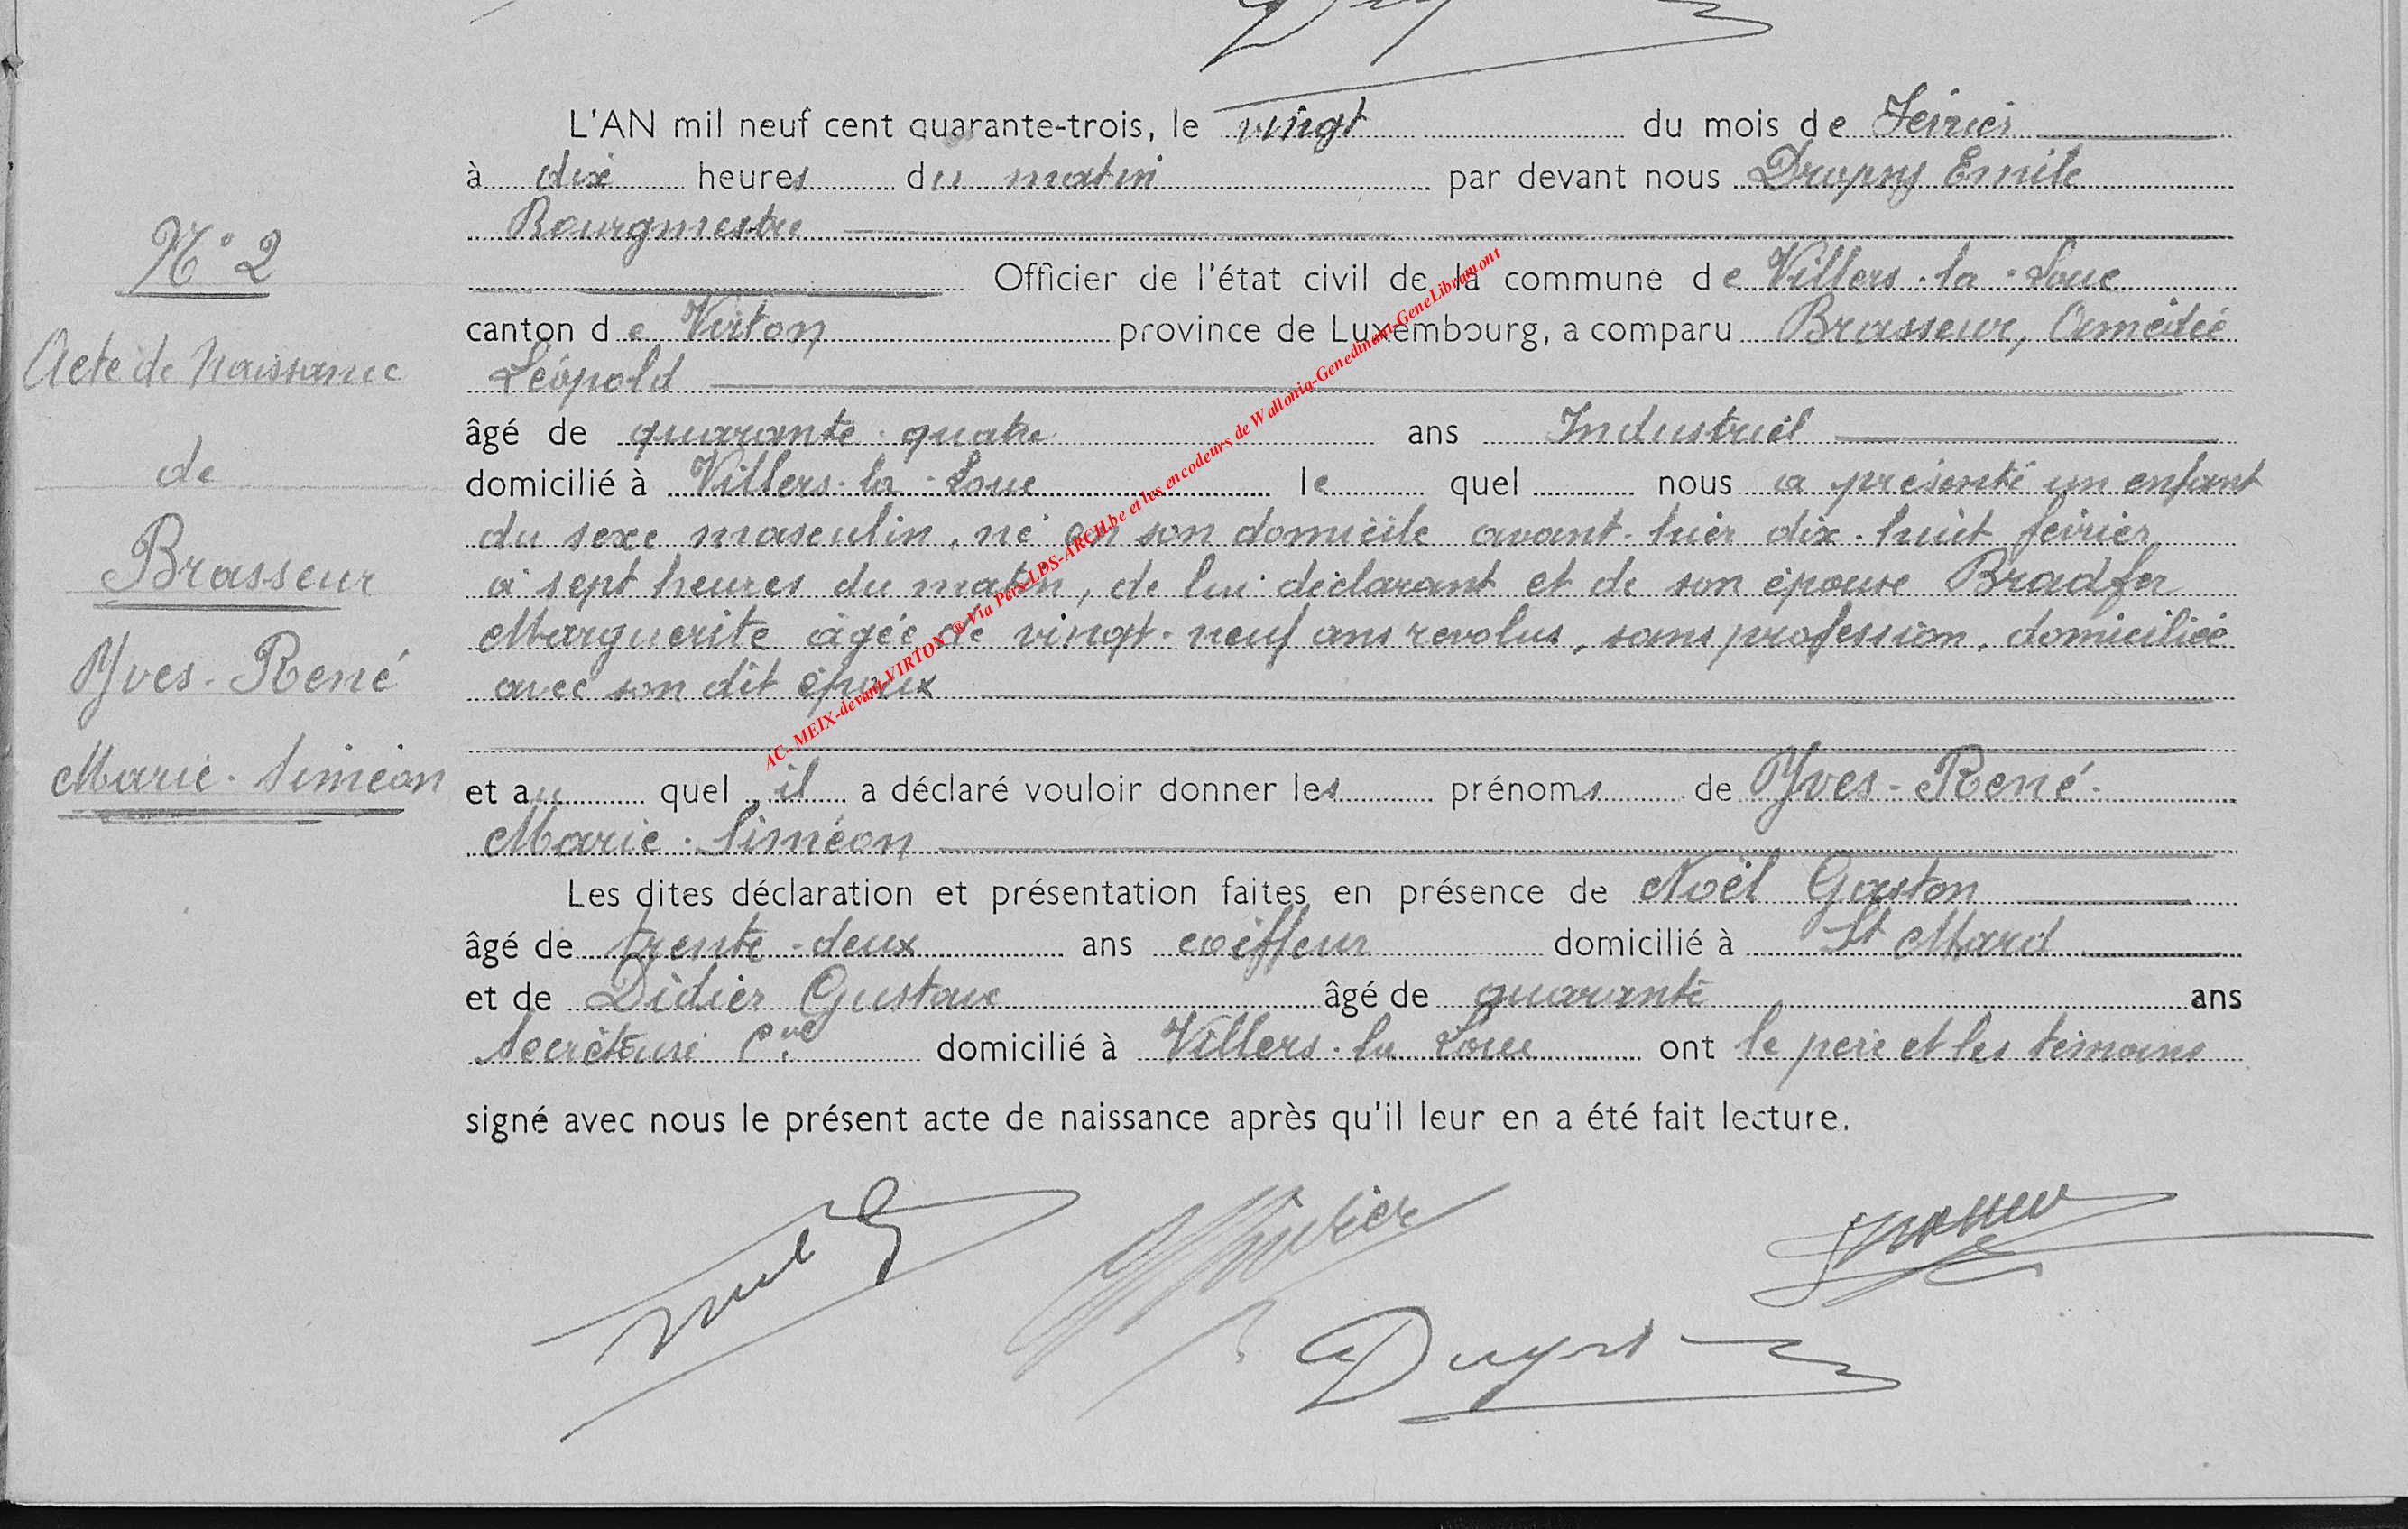 N° 2
Acte de Naissance
de
Brasseur
Yves-René
Marie-Siméon
L'AN mil neuf cent quarante-trois, le vingt du mois de Février
à dix heures du matin par devant nous Emile
Bourgmestre
Officier de l'état civil de la commune de Villers-la-Loue
canton de Virton province de Luxembourg, a comparu Brasseur, Amédée
Léopold
âgé de quarante-quatre ans Industriel
domicilié à Villers-la-Loue le quel nous a présenté un enfant
du sexe masculin, né en son domicile avant-hier dix-huit février
à sept heures du matin, de lui déclarant et de son épouse Bradfer
Marguerite âgée de vingt-neuf ans revolus, sans profession, domiciliée
avec son dit époux
et au quel il a déclaré vouloir donner les prénoms de Yves-René-
Marie-Siméon
Les dites déclaration et présentation faites en présence de Noël Gaston
âgé de trente-deux ans coiffeur domicilié à St Mard
et de Didier Gustave âgé de quarante ans
Secrétaire Cnal domicilié à Villers-la-Loue ont le père et les témoins
signé avec nous le présent acte de naissance après qu'il leur en a été fait lecture.
AC- MEIX-devant-VIRTON ® Via Pers-LDS-ARCH.be et les encodeurs de Wallonia-Genedinant-GeneLibramont